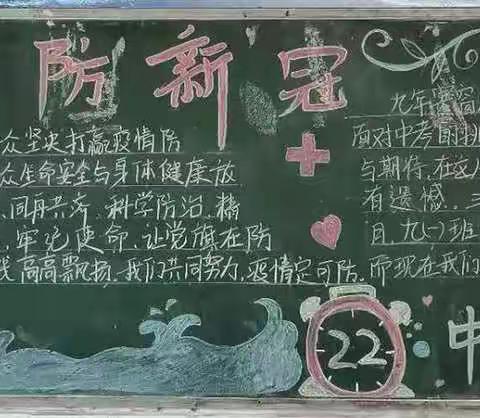 防新冠
众坚决打赢疫情防
众生命安全与身体健康放
同舟共济、科学防治、精
牢记使命,让党旗在防
线高高飘扬,我们共同努力,疫情定可防,
九年寒窗
面对中考前的
与期待,在这
有遗憾,三
月,九(一)班
而现在我们
22
中